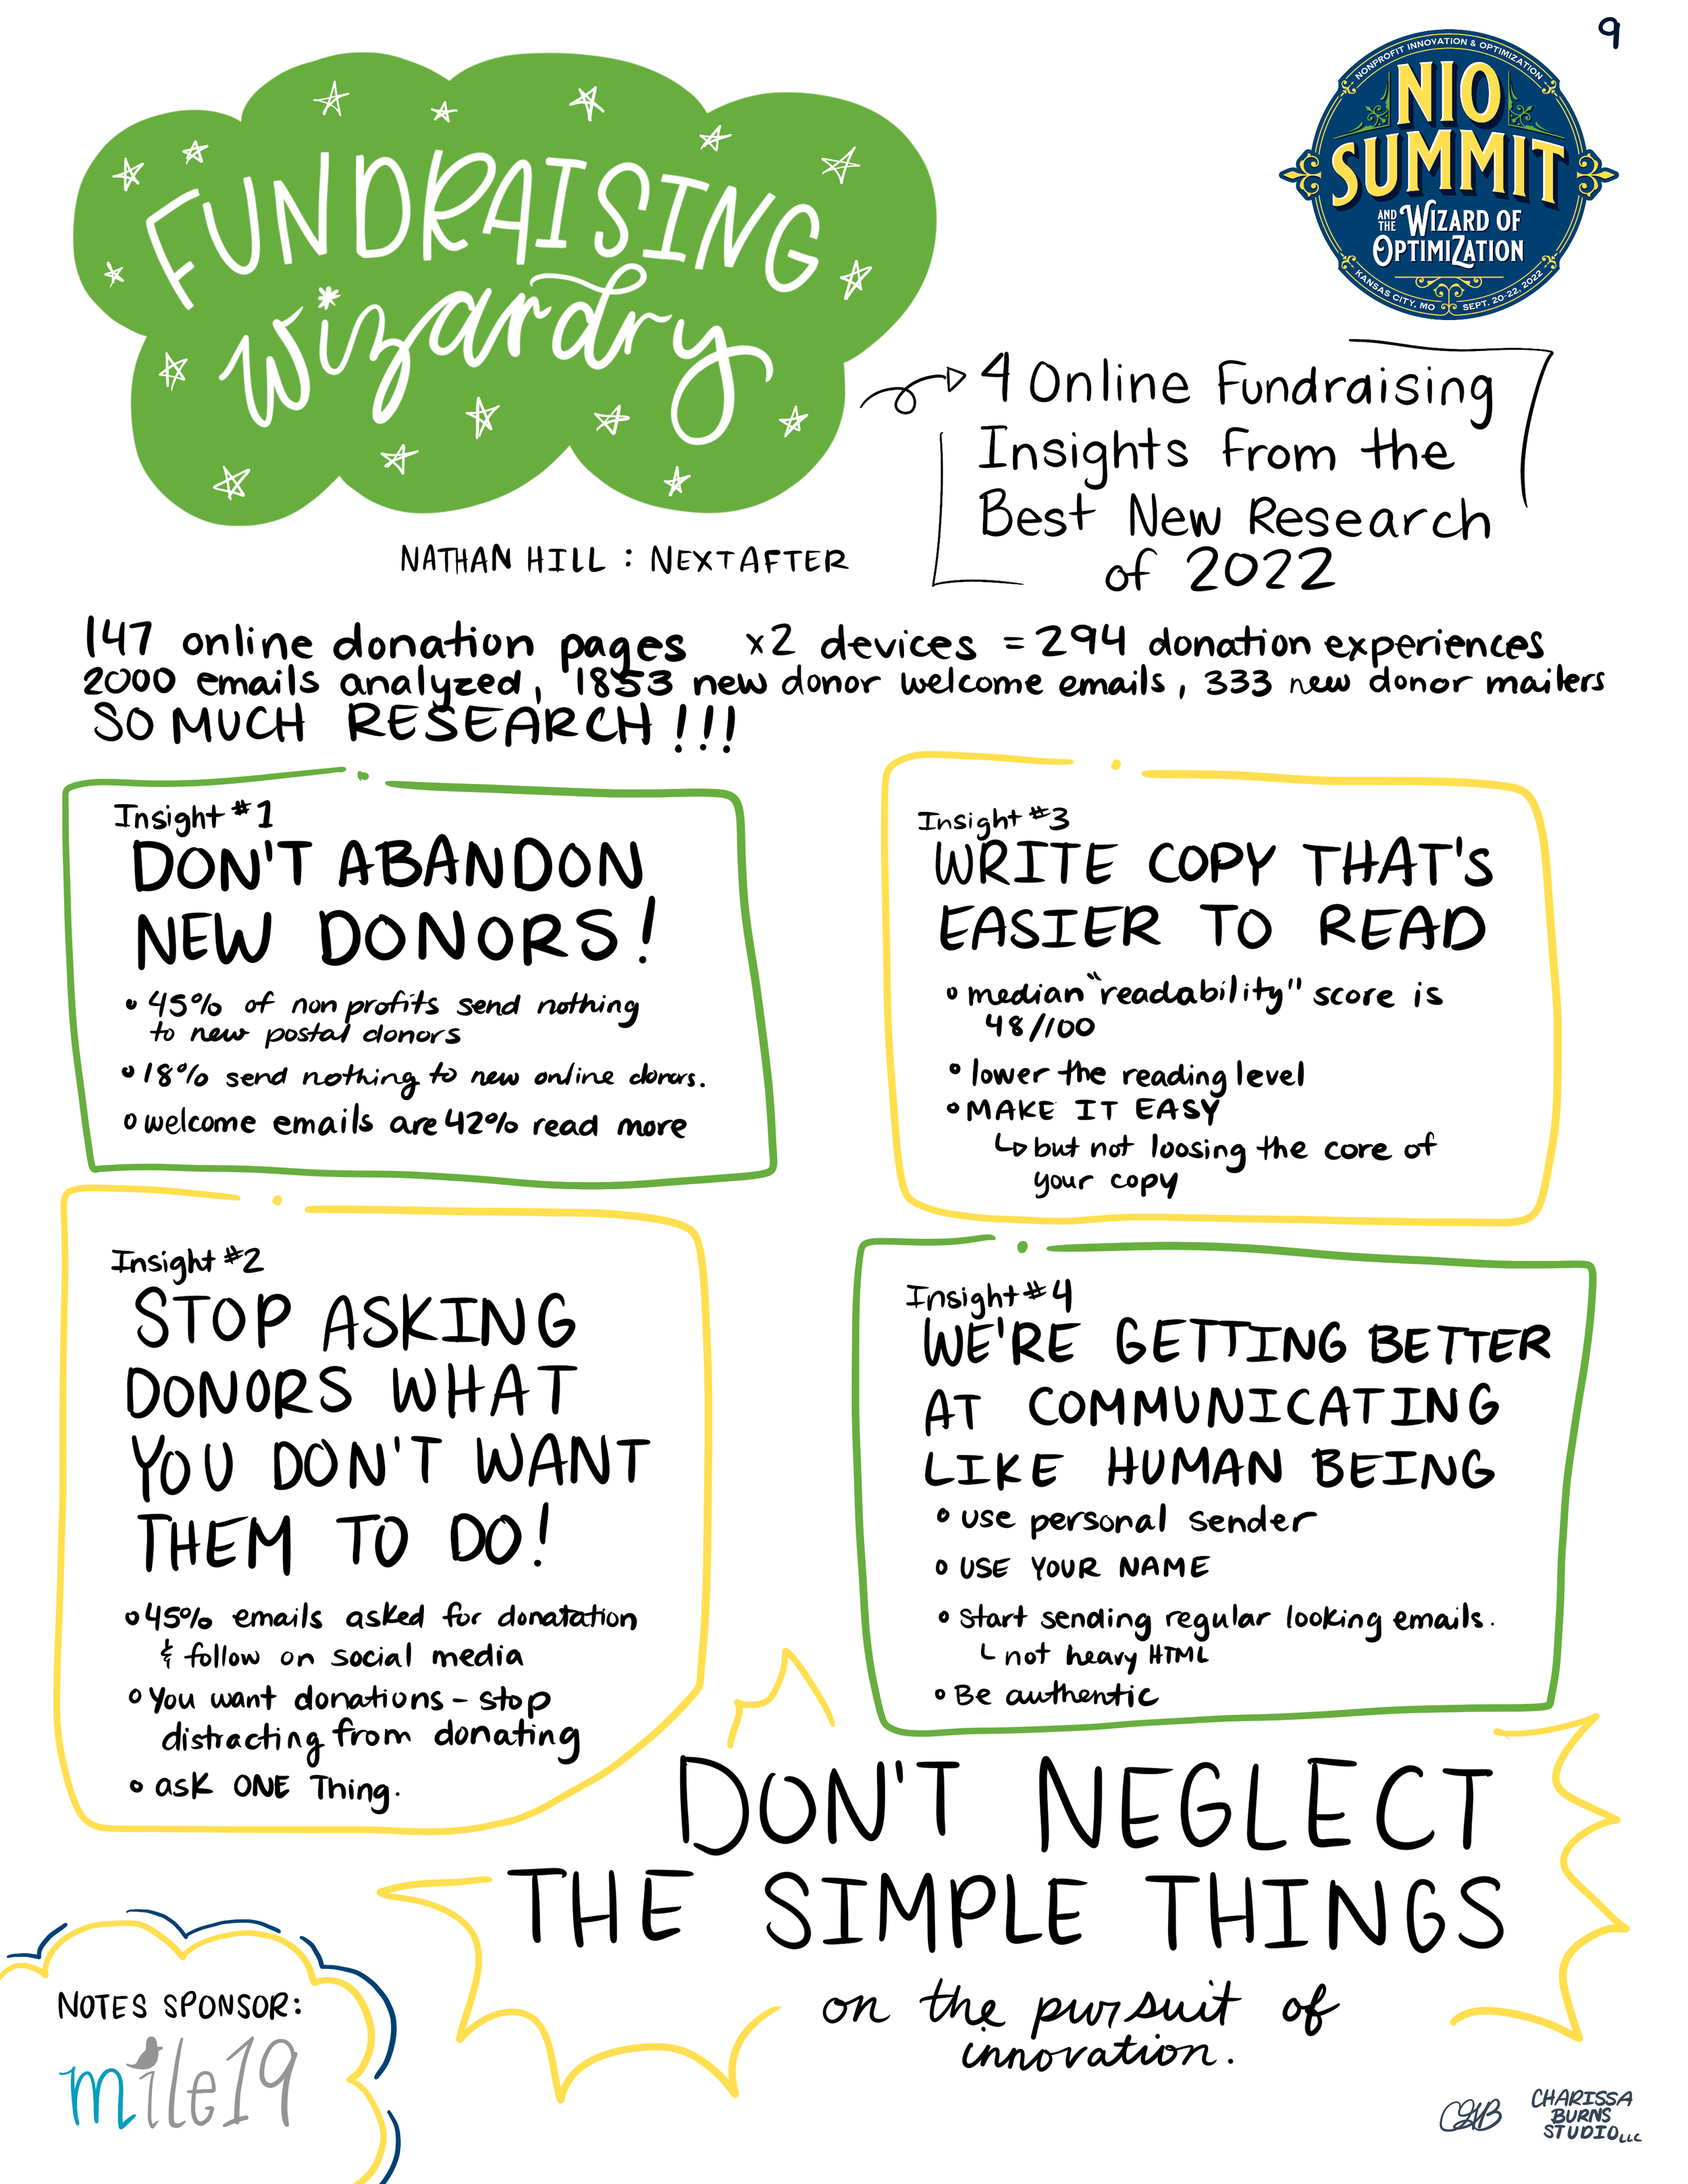 9
NONPROFIT INNOVATION & OPTIMIZATION
NIO
SUMMIT
AND THE WIZARD OF
OPTIMIZATION
KANSAS CITY, MO SEPT. 20-22, 2022
FUNDRAISING
wizardry
4 Online Fundraising
Insights From the
Best New Research
of 2022
NATHAN HILL : NEXTAFTER
147 online donation pages x2 devices = 294 donation experiences
2000 emails analyzed, 1853 new donor welcome emails, 333 new donor mailers
SO MUCH RESEARCH!!!
Insight #1
DON'T ABANDON
NEW DONORS!
• 45% of non profits send nothing
to new postal donors
• 18% send nothing to new online donors.
• welcome emails are 42% read more
Insight #2
STOP ASKING
DONORS WHAT
YOU DON'T WANT
THEM TO DO!
• 45% emails asked for donatation
& follow on social media
• You want donations – stop
distracting from donating
• ask ONE Thing.
Insight #3
WRITE COPY THAT'S
EASIER TO READ
• median "readability" score is
48/100
• lower the reading level
• MAKE IT EASY
↳ but not loosing the core of
your copy
Insight #4
WE'RE GETTING BETTER
AT COMMUNICATING
LIKE HUMAN BEING
• use personal sender
• USE YOUR NAME
• Start sending regular looking emails.
└ not heavy HTML
• Be authentic
DON'T NEGLECT
THE SIMPLE THINGS
on the pursuit of
innovation.
NOTES SPONSOR:
mile19
CGB
CHARISSA
BURNS
STUDIO LLC